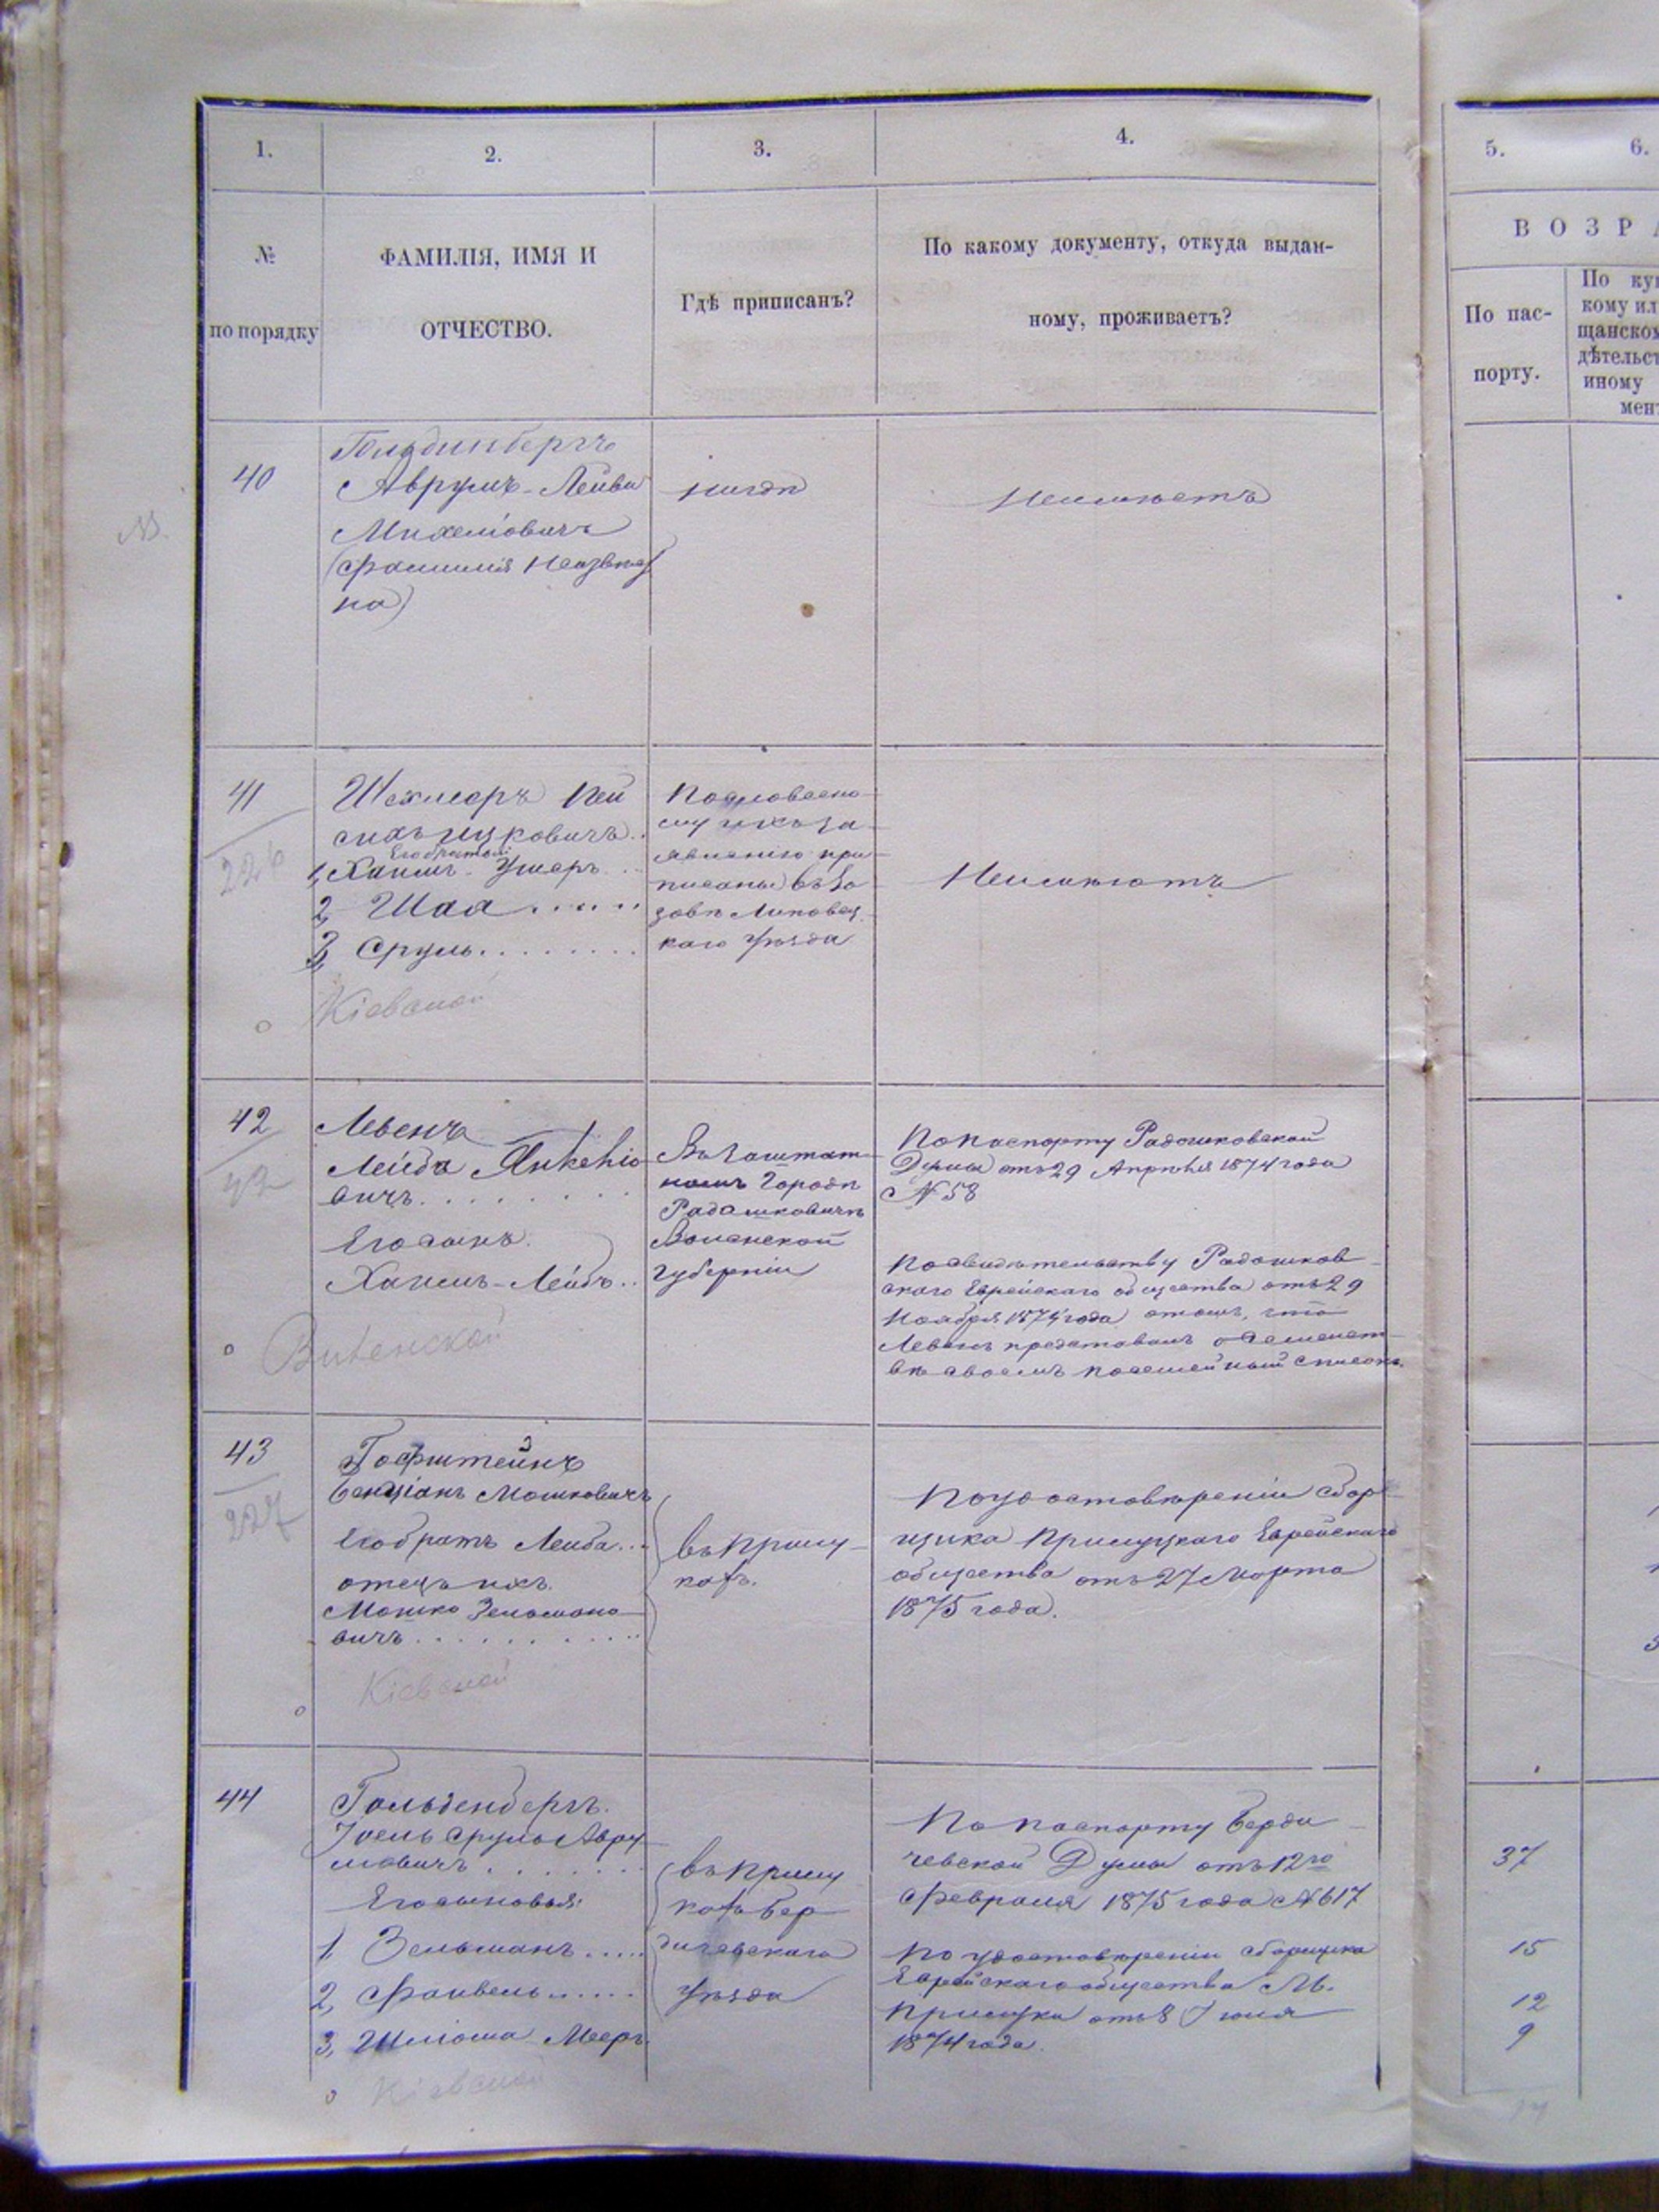 1.
2.
3.
4.
5.
6.
№
по порядку
ФАМИЛІЯ, ИМЯ И
ОТЧЕСТВО.
Гдѣ приписанъ?
По какому документу, откуда выдан-
ному, проживаетъ?
ВОЗРА
По пас-
порту.
По куп
кому ил
щанском
дѣтельст
иному
мент
40
Гольдинбергъ
Аврумъ-Лейба
Михелiовичъ
(фамилiя неизвѣст
на)
нигдѣ
Неимѣетъ
41
226
Шехмеръ Пей
сихъ Ицковичъ.
Его братья
1, Хаимъ-Ушеръ...
2, Шая.....
3, Сруль........
Кіевской
Пословесно-
му ихъ за-
явленію при-
писаны въ Ло
зовѣ Липовец-
каго уѣзда
Неимѣютъ
42
42
Левенъ
Лейба Янкеліо-
вичъ........
Его сынъ.
Хаимъ-Лейбъ..
Виленской
Въ заштат-
номъ городѣ
Радашковичѣ
Виленской
губерніи
По паспорту Радошковской
Думы отъ 29 Апрѣля 1874 года
№ 58
По свидѣтельству Радошков-
скаго Еврейскаго общества отъ 29
Ноября 1874 года о томъ, что
Левенъ представилъ о семейст-
вѣ своемъ посемейный списокъ.
43
227
Гофштейнъ
Бенціонъ Мошковичъ
Его братъ Лейба...
отецъ ихъ.
Мошко Зельмано-
вичъ..........
Кіевской
въ Прилу-
кахъ.
По удостовѣренію сбор-
щика Прилуцкаго Еврейскаго
общества отъ 27 Марта
1875 года.
44
Гольденбергъ.
Іоель Сруль Авру-
мовичъ.......
Его сыновья:
1, Зельманъ.....
2, Файвель......
3, Шлiома-Мееръ.
Кіевской
въ Прилу
кахъ Бер
дичевскаго
уѣзда
По паспорту Берди-
чевской Думы отъ 12го
Февраля 1875 года № 617
По удостовѣренію сборщика
Еврейскаго общества М.
Прилуки отъ 8 Іюля
1874 года.
37
15
12
9